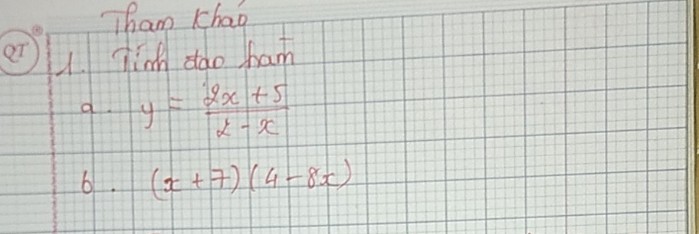 Tham khảo
QT 1. Tính đạo hàm
a. y = \frac{2x + 5}{2 - x}
b. (x + 7)(4 - 8x)